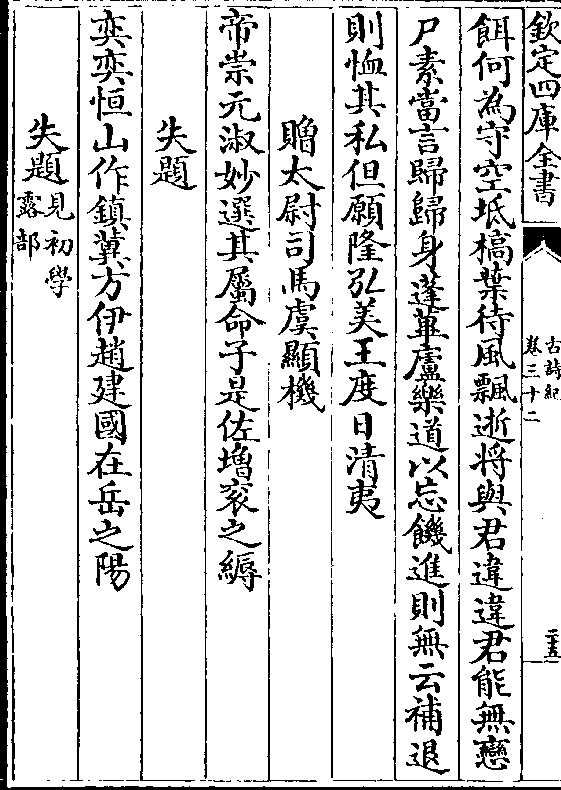 欽定四庫全書
古詩紀
卷三十二
二十五
餌何為守空坻槁葉待風飄逝将與君違違君能無戀
尸素當言歸歸身蓬蓽廬樂道以忘饑進則無云補退
則恤其私但願隆弘美王度日清夷
贈太尉司馬虞顯機
帝崇元淑妙選其屬命子是佐増衮之縟
失題
奕奕恒山作鎮冀方伊趙建國在岳之陽
失題見初學
露部